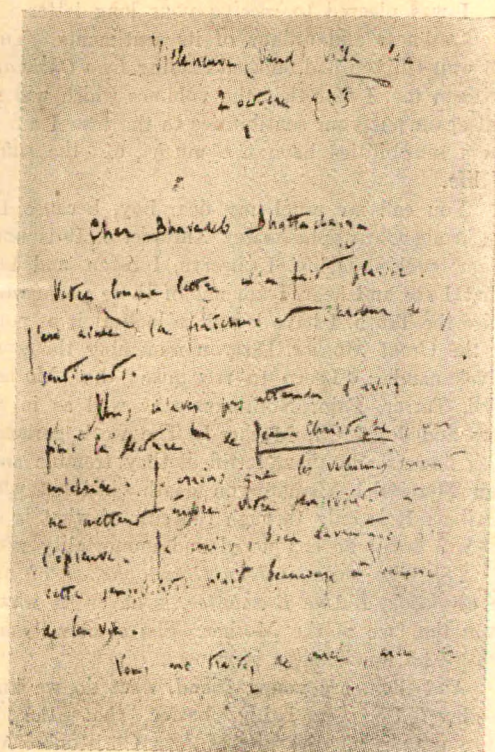 Villeneuve (Vaud) villa Olga
2 octobre 1933
Cher Bhavadeb Bhattacharya
Votre bonne lettre m'a fait plaisir.
J'en aime la fraîcheur et l'ardeur de
sentiments.
Vous n'avez pas attendu d'avoir
fini la lecture de Jean Christophe pour
m'écrire. Je crains que les volumes
ne mettent encore votre sensibilité à
l'épreuve. Je crains, bien davantage,
cette sensibilité n'ait beaucoup à
de la vie.
Vous me traitez de